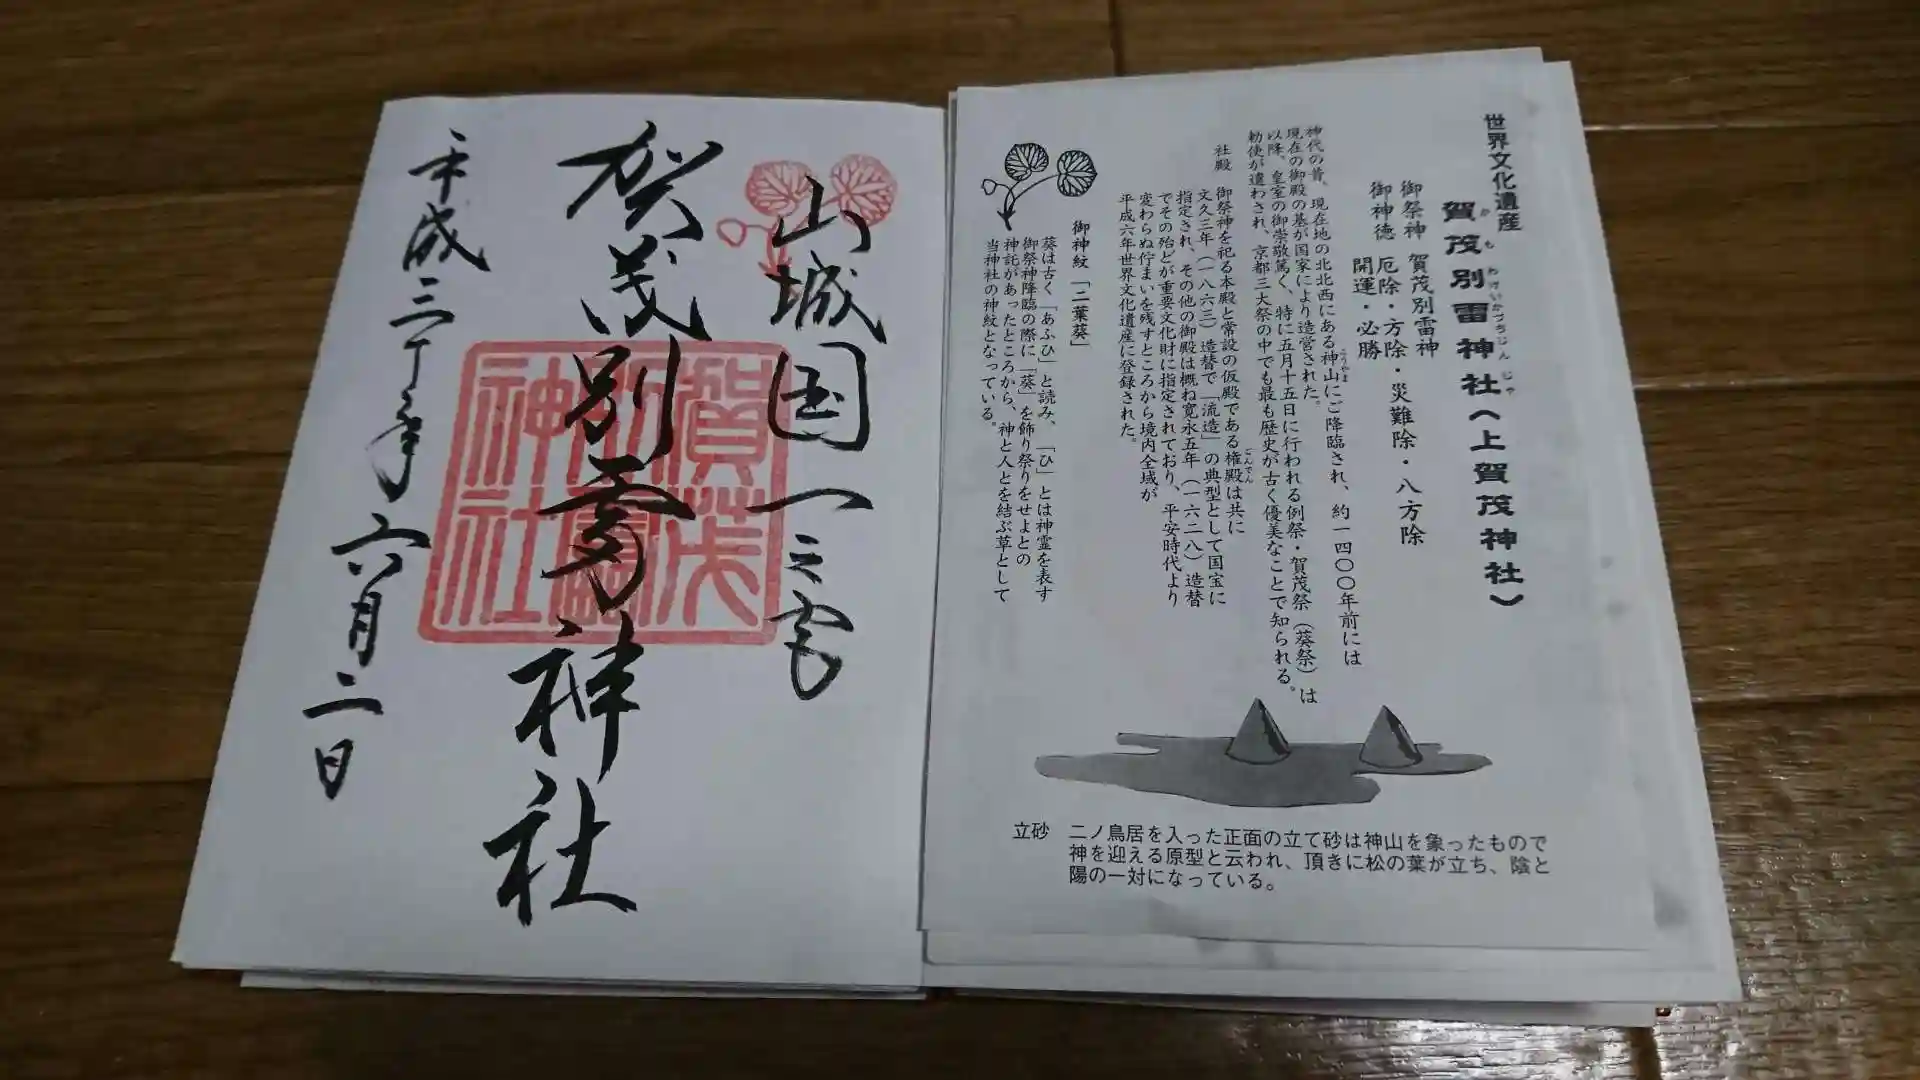 世界文化遺産
賀茂別雷神社(上賀茂神社)
かもわけいかづちじんじゃ
御祭神 賀茂別雷神
御神徳 厄除・方除・災難除・八方除
開運・必勝
神代の昔、現在地の北北西にある神山にご降臨され、約一四〇〇年前には
こうやま
現在の御殿の基が国家により造営された。
以降、皇室の御崇敬篤く、特に五月十五日に行われる例祭・賀茂祭(葵祭)は
勅使が遣わされ、京都三大祭の中でも最も歴史が古く優美なことで知られる。
社殿
御祭神を祀る本殿と常設の仮殿である権殿は共に
ごんでん
文久三年(一八六三)造替で「流造」の典型として国宝に
指定され、その他の御殿は概ね寛永五年(一六二八)造替
でその殆どが重要文化財に指定されており、平安時代より
変わらぬ佇まいを残すところから境内全域が
平成六年世界文化遺産に登録された。
御神紋「二葉葵」
葵は古く「あふひ」と読み、「ひ」とは神霊を表す
御祭神降臨の際に「葵」を飾り祭りをせよとの
神託があったところから、神と人とを結ぶ草として
当神社の神紋となっている。
立砂 二ノ鳥居を入った正面の立て砂は神山を象ったもので
神を迎える原型と云われ、頂きに松の葉が立ち、陰と
陽の一対になっている。
山城国一之宮
賀茂別雷神社
賀茂
別雷
神社
平成三十年六月二日